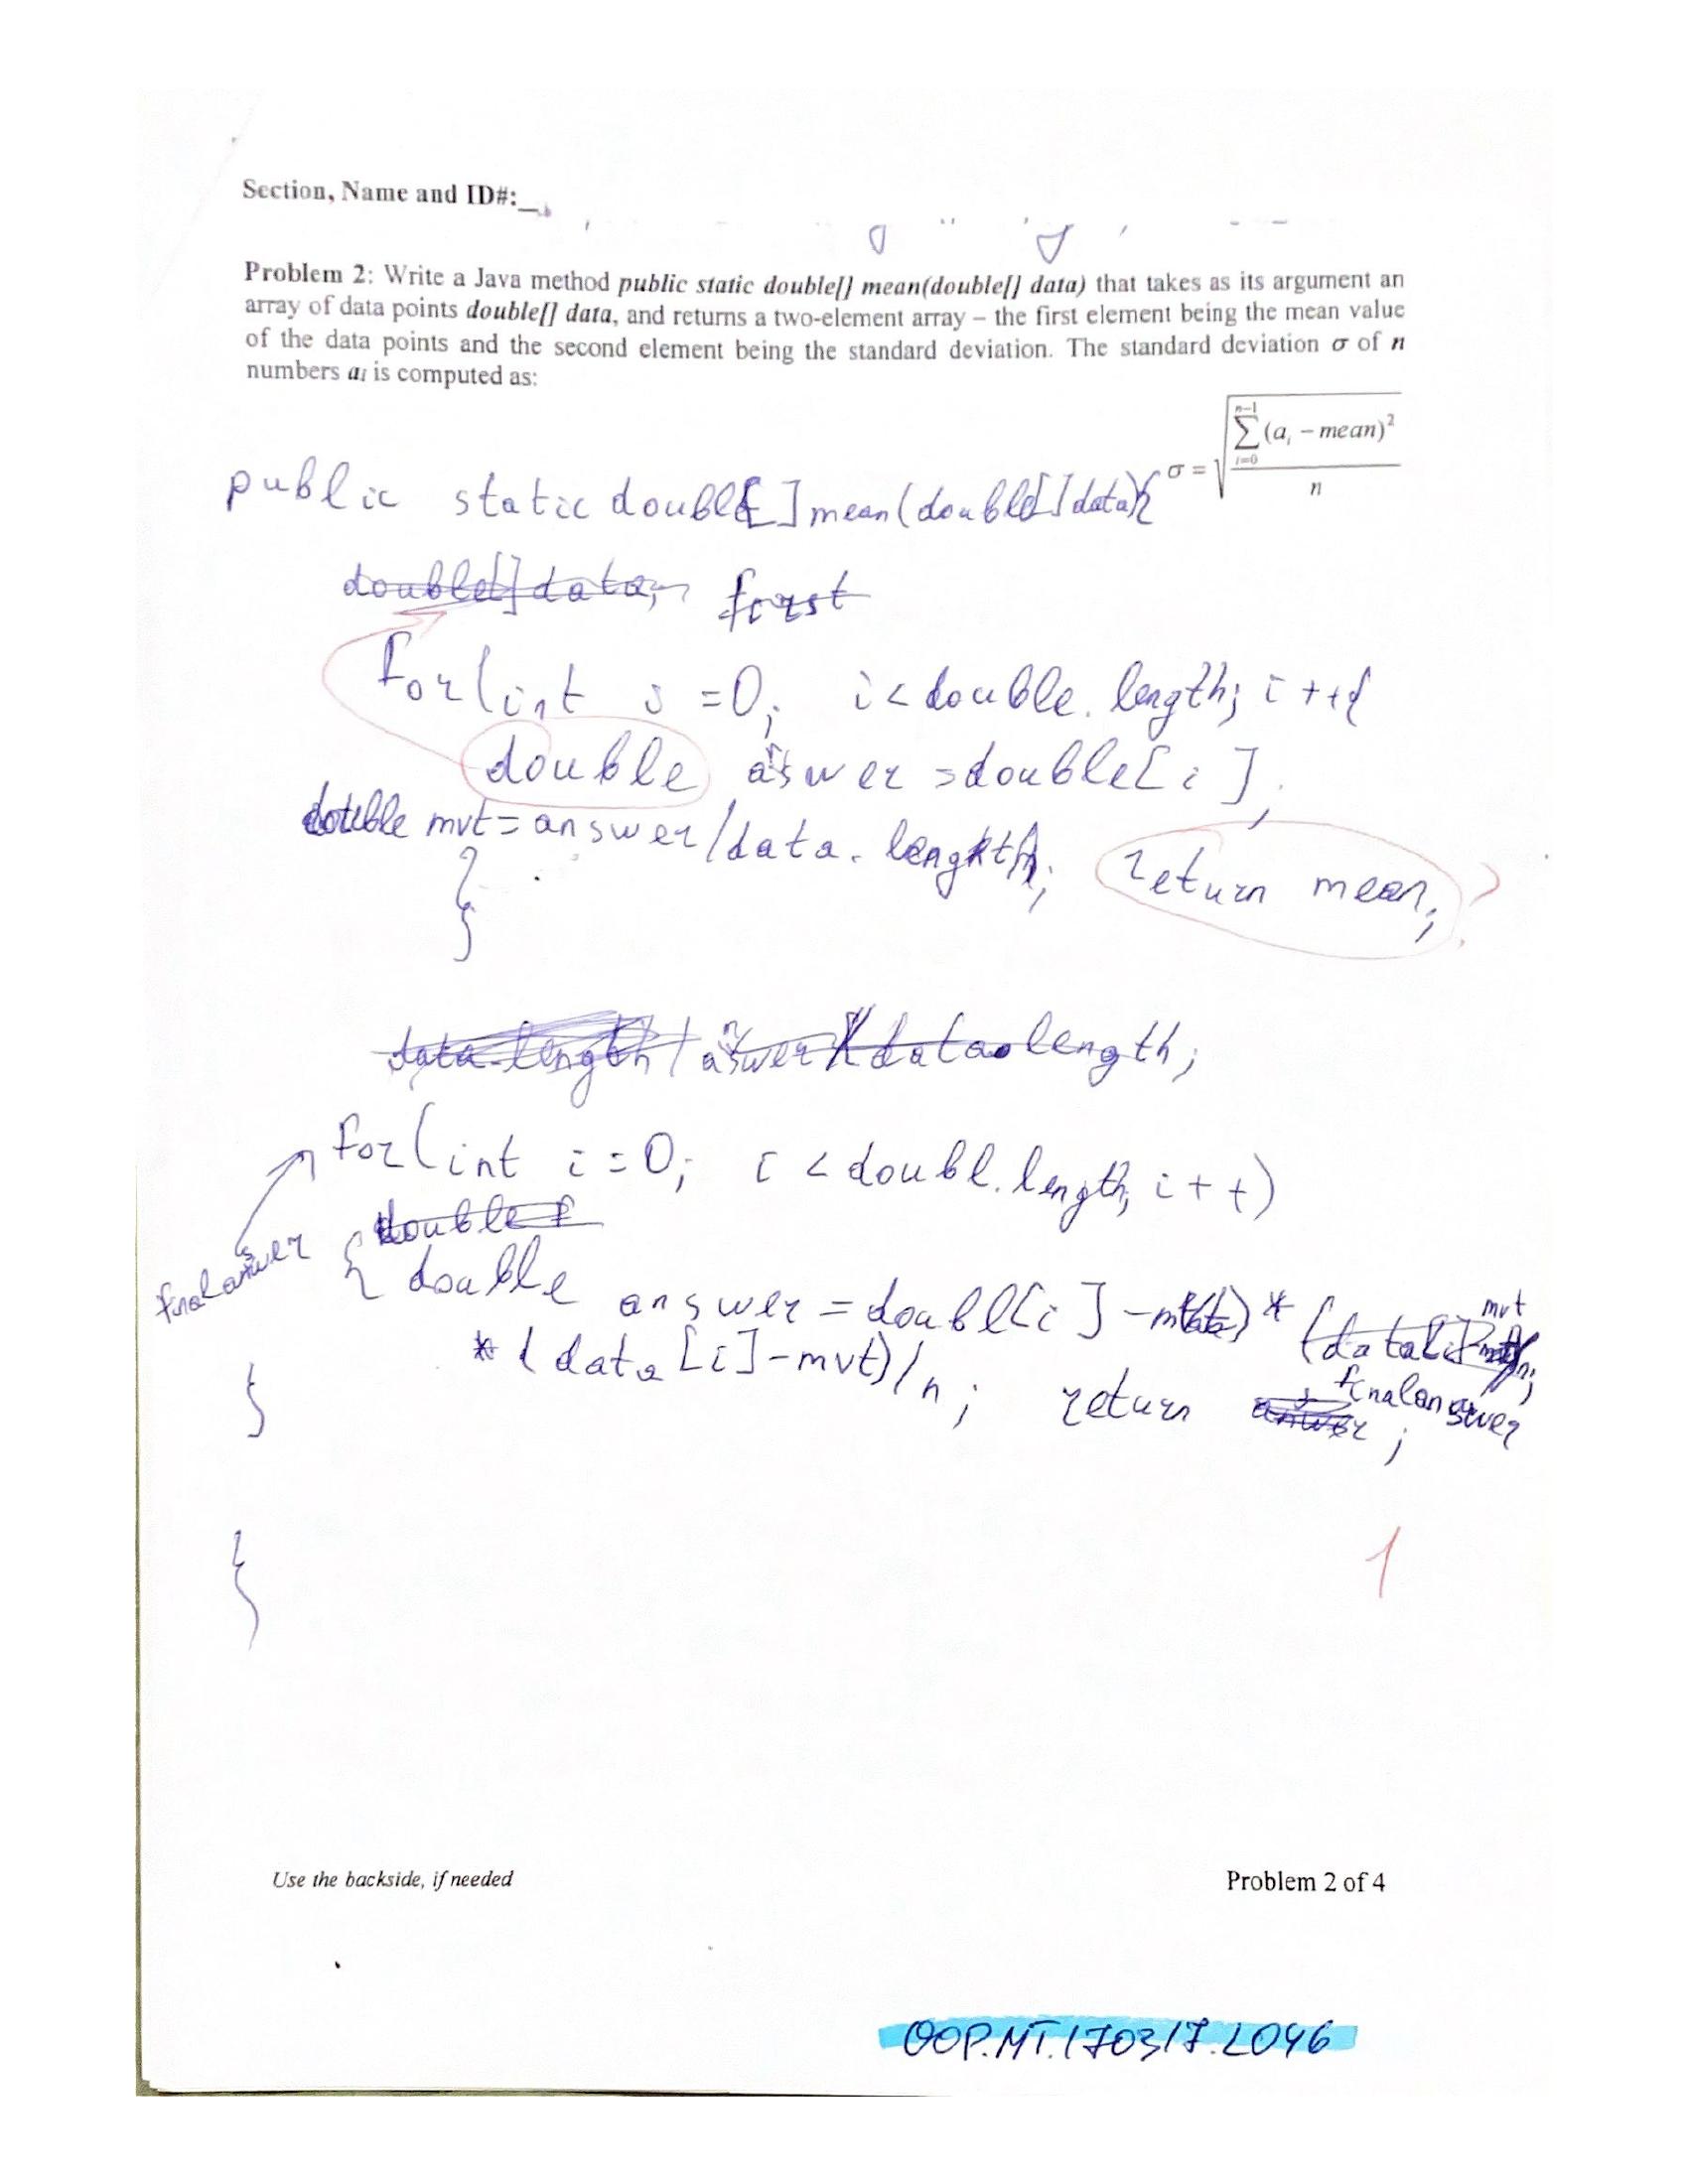 Section, Name and ID#:
Problem 2: Write a Java method public static double[] mean(double[] data) that takes as its argument an
array of data points double[] data, and returns a two-element array – the first element being the mean value
of the data points and the second element being the standard deviation. The standard deviation σ of n
numbers aᵢ is computed as:
σ = √(∑_{i=0}^{n-1} (aᵢ – mean)² / n)
public static double[] mean(double[] data){
double[] data, first
for(int i =0; i< double. length; i ++{
double answer =double[i];
double mvt = answer/data. length;
return mean;
}
data.length / answer / data.length;
for(int i=0; i < doubl. length; i++)
double f
finalanswer
{ double answer = doubl[i] -mvt) * (data[i]-mvt
* (data[i]-mvt)/n; return finalanswer ;
}
}
1
Use the backside, if needed
Problem 2 of 4
OOP.MT.170317.L046